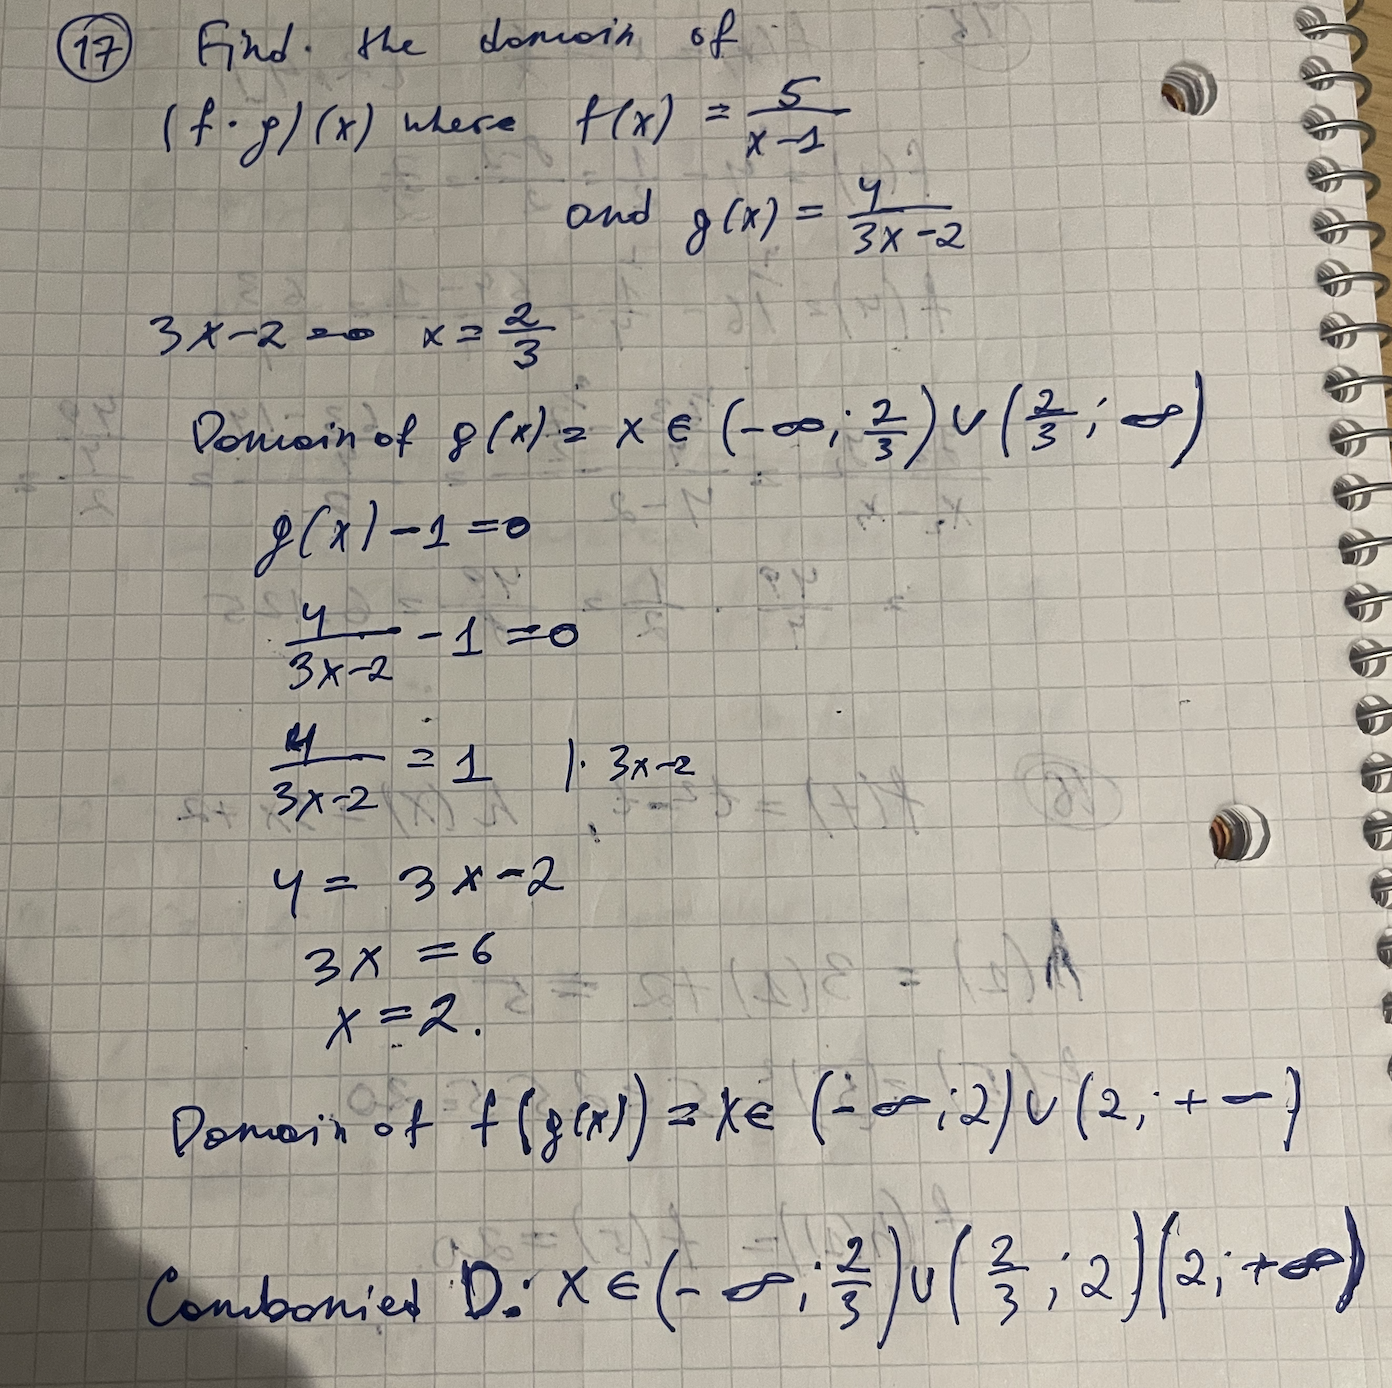 17 Find. the domain of
(f·g)(x) where f(x) = 5/(x-1)
and g(x) = 4/(3x-2)
3x-2=0 x=2/3
Domain of g(x) = x∈(-∞; 2/3)∪(2/3; ∞)
g(x)-1=0
4/(3x-2) - 1 = 0
4/(3x-2) = 1 |· 3x-2
4 = 3x-2
3x = 6
x = 2.
Domain of f(g(x)) = x∈ (-∞; 2)∪(2; +∞)
Combonied D: x∈(-∞; 2/3)∪(2/3; 2)(2; +∞)